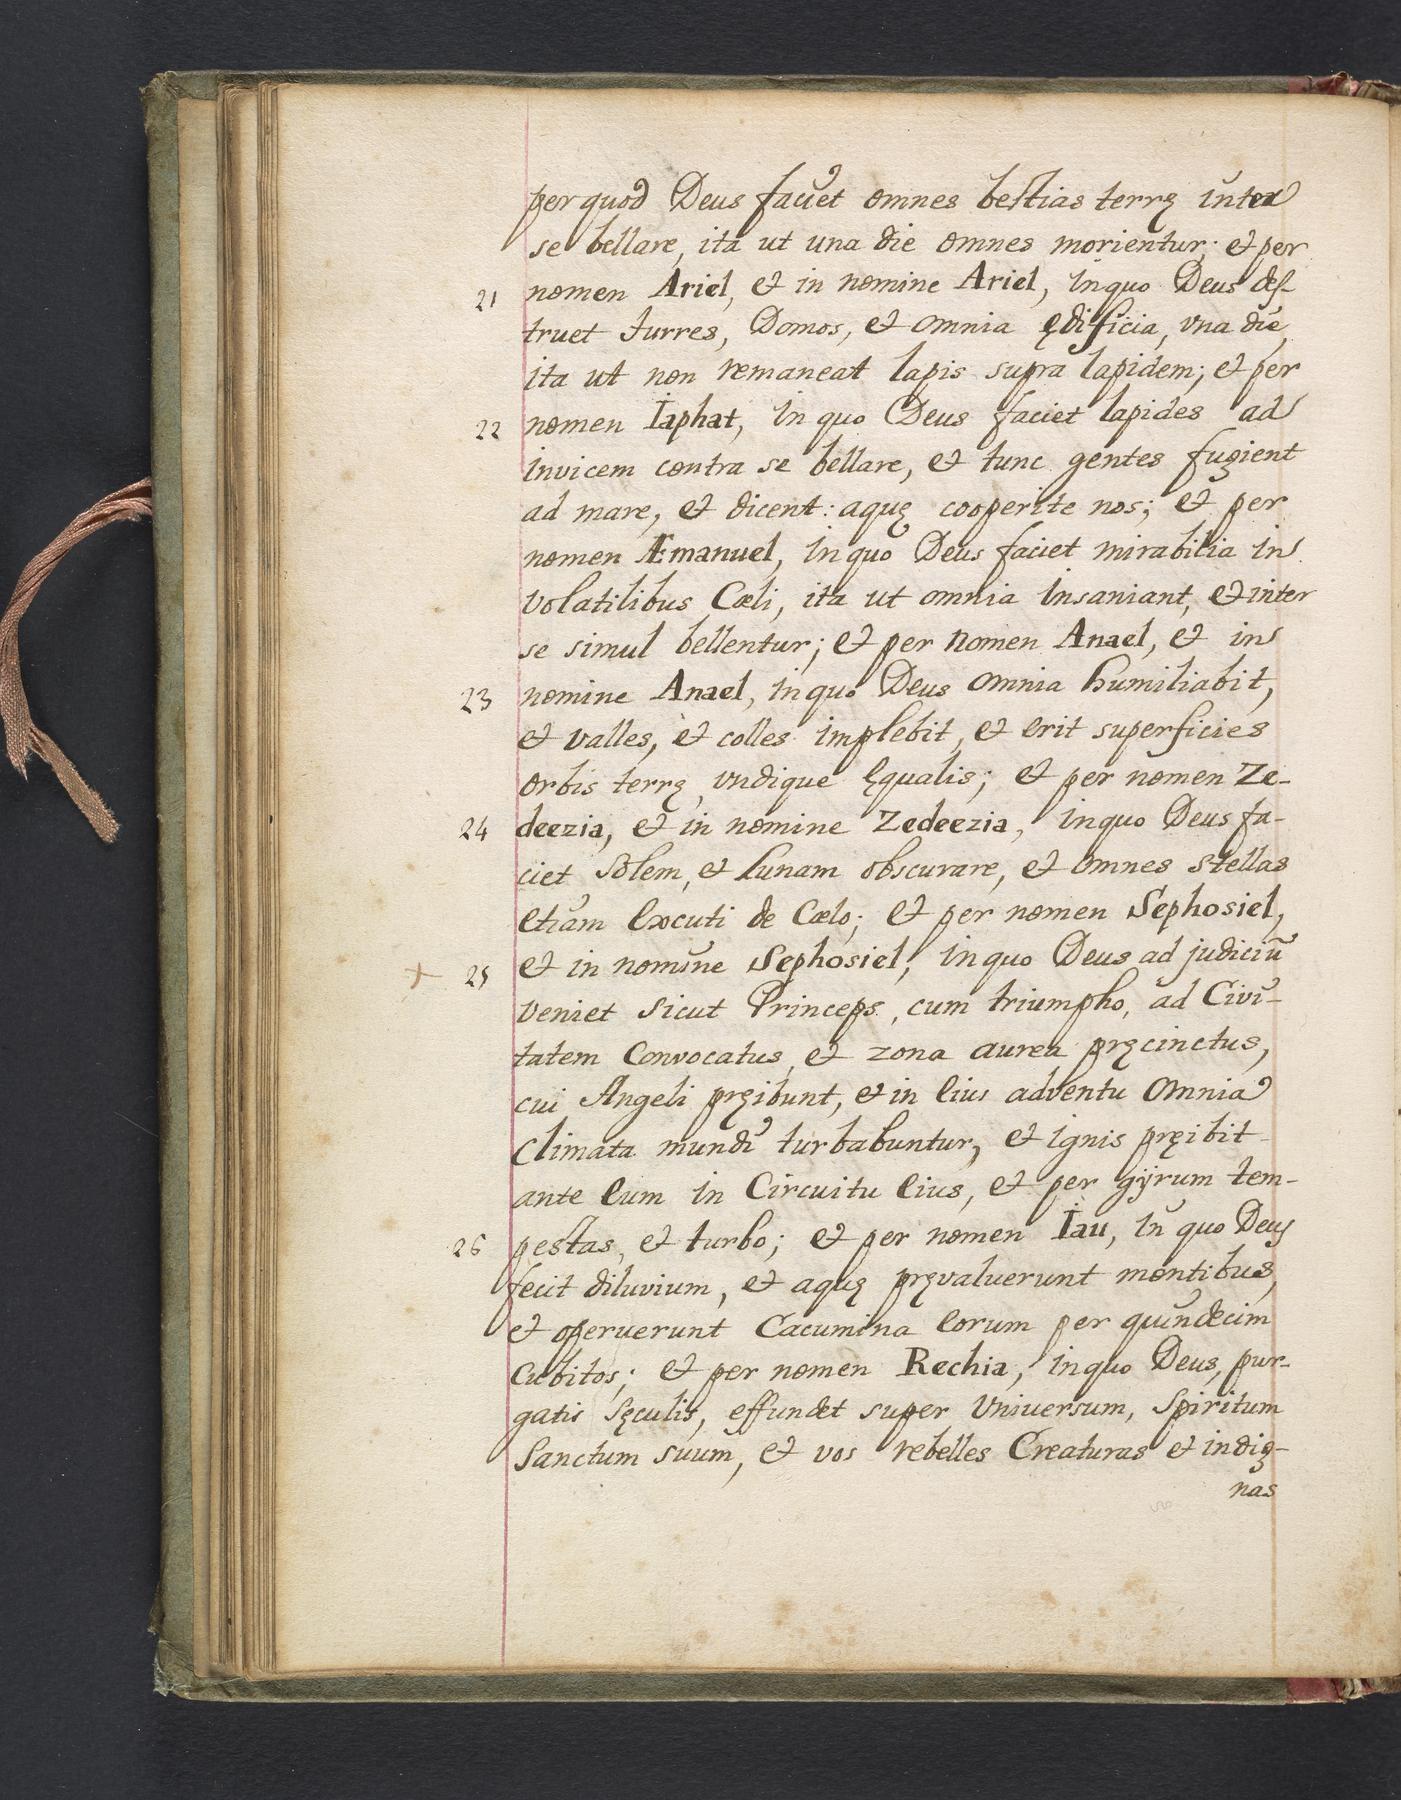 per quod Deus faciet omnes bestias terrę inter
se bellare, ita ut una die omnes morientur; et per
21 nomen Ariel, et in nomine Ariel, in quo Deus des
truet turres, Domos, et omnia ędificia, vna die,
ita ut non remaneat lapis supra lapidem; et per
22 nomen Iaphat, in quo Deus faciet lapides ad
invicem contra se bellare, et tunc gentes fugient
ad mare, et dicent: aquę cooperite nos; et per
nomen Æmanuel, in quo Deus faciet mirabilia in
volatilibus Cœli, ita ut omnia insaniant, et inter
se simul bellentur; et per nomen Anael, et in
23 nomine Anael, in quo Deus omnia humiliabit,
et valles, et colles implebit, et erit superficies
orbis terrę, vndique ęqualis; et per nomen Ze-
24 deezia, et in nomine Zedeezia, in quo Deus fa-
ciet Solem, et Lunam obscurare, et omnes stellas
etiam excuti de Cœlo; et per nomen Sephosiel,
25 et in nomine Sephosiel, in quo Deus ad judiciū
veniet sicut Princeps, cum triumpho, ad Civi-
tatem Convocatus, et zona aurea pręcinctus,
cui Angeli pręibunt, et in eius adventu omnia
climata mundi turbabuntur, et ignis pręibit
ante eum in Circuitu eius, et per gÿrum tem-
26 pestas, et turbo; et per nomen Iau, in quo Deus
fecit diluvium, et aquę pręvaluerunt montibus,
et operuerunt Cacumina eorum per quindecim
Cubitos; et per nomen Rechia, in quo Deus, pur-
gatis sęculis, effundet super Vniuersum, Spiritum
Sanctum suum, et vos rebelles Creaturas et indig-
nas